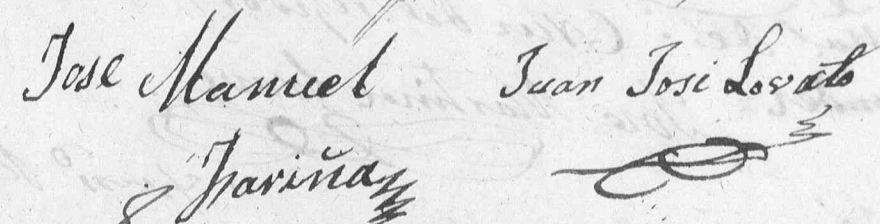 Jose Manuel
Fariña
Juan Josi Lovato